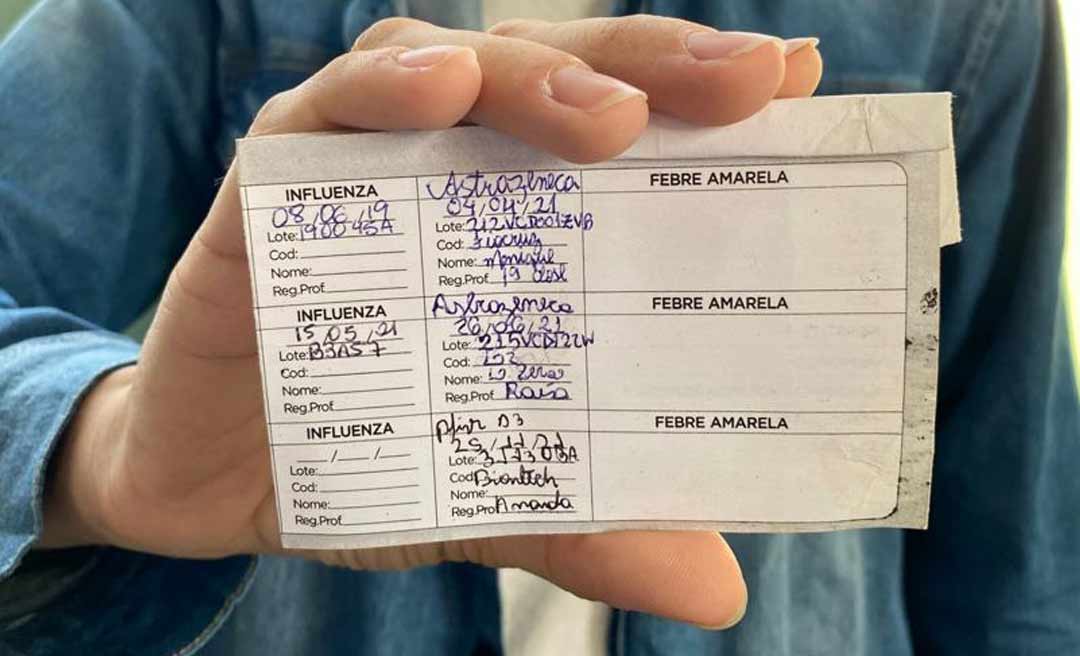 INFLUENZA
08/06/19
Lote: 190045A
Cod:
Nome:
Reg.Prof
Astrazeneca
04/04/21
Lote:
Cod: Fiocruz
Nome: Monique
Reg.Prof
FEBRE AMARELA
INFLUENZA
15/05/21
Lote:
Cod:
Nome:
Reg.Prof
Astrazeneca
26/06/21
Lote: 215VCD122W
Cod:
Nome:
Reg.Prof
FEBRE AMARELA
INFLUENZA
_/_/_
Lote:
Cod:
Nome:
Reg.Prof
D3
25/11/21
Lote:
Cod: Biontech
Nome:
Reg.Pro Amanda
FEBRE AMARELA